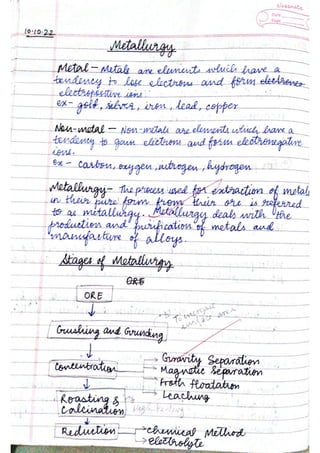 10.10.22
Metallurgy
Metal - Metals are elements which have a
tendency to lose electrons and form electrones
electropositive ions
ex - gold, silver, iron, lead, copper
Non-metal - Non-metals are elements which have a
tendency to gain electrons and form electronegative
ions.
ex - carbon, oxygen, nitrogen, hydrogen
Metallurgy - The process used for extraction of metals
in their pure form from their ore is referred
to as metallurgy. Metallurgy deals with the
production and purification of metals and
manufacture of alloys.
Stages of Metallurgy
ORE
ORE
To increase
surface area
Crushing and Grinding
Concentration
Gravity Separation
Magnetic Separation
Froth floatation
Leaching
Roasting &
Calcination
Reduction
Chemical Method
Electrolyte